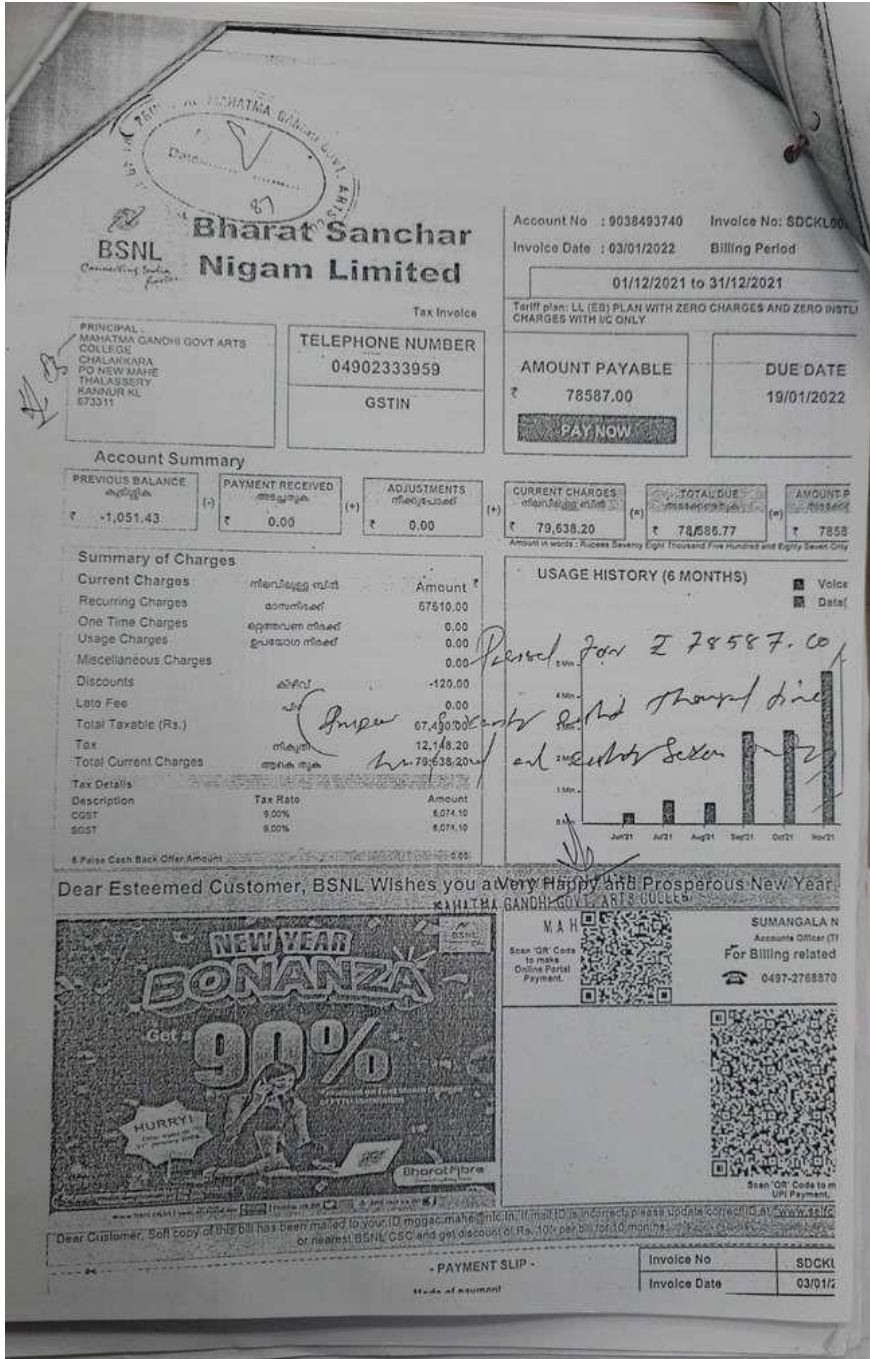 MAHATMA GANDHI GOVT. ARTS
Date
87
BSNL
Connecting India
Bharat Sanchar
Nigam Limited
Account No : 9038493740 Invoice No: SDCKL00
Invoice Date : 03/01/2022 Billing Period
01/12/2021 to 31/12/2021
Tax Invoice
Tariff plan: LL (EB) PLAN WITH ZERO CHARGES AND ZERO INSTL
CHARGES WITH I/C ONLY
PRINCIPAL .
MAHATMA GANDHI GOVT ARTS
COLLEGE
CHALAKKARA
PO NEW MAHE
THALASSERY
KANNUR KL
673311
TELEPHONE NUMBER
04902333959
GSTIN
AMOUNT PAYABLE
₹ 78587.00
PAY NOW
DUE DATE
19/01/2022
Account Summary
PREVIOUS BALANCE
കുടിശ്ശിക
₹ -1,051.43
(-)
PAYMENT RECEIVED
അടച്ചതുക
₹ 0.00
(+)
ADJUSTMENTS
നീക്കുപോക്ക്
₹ 0.00
(+)
CURRENT CHARGES
നിലവിലുള്ള ബിൽ
₹ 79,638.20
(=)
TOTAL DUE
₹ 78,586.77
(=)
AMOUNT P
₹ 7858
Amount in words : Rupees Seventy Eight Thousand Five Hundred and Eighty Seven Only
Summary of Charges
Current Charges നിലവിലുള്ള ബിൽ Amount ₹
Recurring Charges മാസനിരക്ക് 67610.00
One Time Charges ഒറ്റത്തവണ നിരക്ക് 0.00
Usage Charges ഉപയോഗ നിരക്ക് 0.00
Miscellaneous Charges 0.00
Discounts കിഴിവ് -120.00
Late Fee പിഴ 0.00
Total Taxable (Rs.) 67,490.00
Tax നികുതി 12,148.20
Total Current Charges ആകെ തുക 79,638.20
Tax Details
Description Tax Rate Amount
CGST 9.00% 6,074.10
SGST 9.00% 6,074.10
6 Paise Cash Back Offer Amount 0.00
USAGE HISTORY (6 MONTHS)
Voice
Data(
5 Min
4 Min
2 Min
1 Min
0 Min
Jun'21 Jul'21 Aug'21 Sep'21 Oct'21 Nov'21
for ₹ 78587.00
Dear Esteemed Customer, BSNL Wishes you a Very Happy and Prosperous New Year
MAHATMA GANDHI GOVT. ARTS COLLEG
MAH
NEW YEAR
BONANZA
Get a
90%
HURRY!
BSNL
Bharat Fibre
Scan 'QR' Code
to make
Online Portal
Payment.
SUMANGALA N
Accounts Officer (T
For Billing related
0497-2768870
Scan 'QR' Code to m
UPI Payment.
Dear Customer, Soft copy of this bill has been mailed to your ID mggac.mahe@nic.in. If mail ID is incorrect, please update correct ID at www.selfc
or nearest BSNL CSC and get discount of Rs. 10/- per bill for 10 months.
- PAYMENT SLIP -
Mode of payment
Invoice No SDCKL
Invoice Date 03/01/2